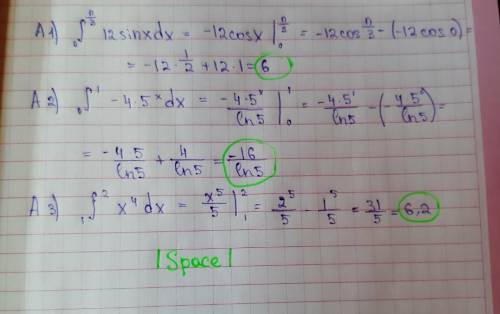 A1) ₀∫^(π/3) 12sinxdx = -12cosx |₀^(π/3) = -12cos π/3 - (-12cos0) =
= -12·1/2 + 12·1 = 6
A2) ₀∫¹ -4·5ˣdx = -4·5ˣ/ln5 |₀¹ = -4·5¹/ln5 - (-4·5⁰/ln5) =
= -4·5/ln5 + 4/ln5 = -16/ln5
A3) ₁∫² x⁴dx = x⁵/5 |₁² = 2⁵/5 - 1⁵/5 = 31/5 = 6,2
|Space|